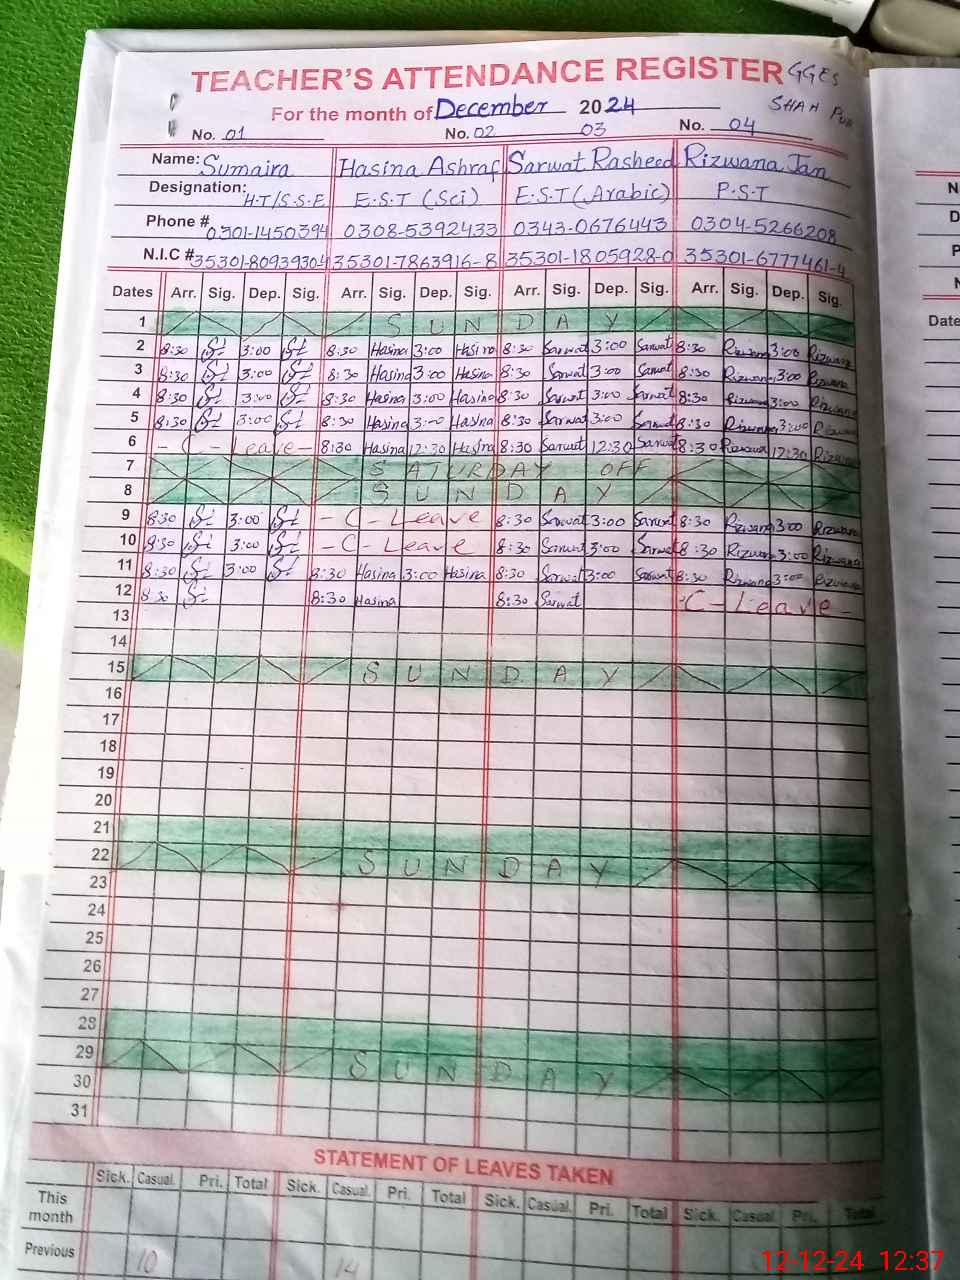 TEACHER'S ATTENDANCE REGISTER GGES
SHAH PUR
For the month of December 2024
No. 01 No. 02 03 No. 04
Name: Sumaira Hasina Ashraf Sarwat Rasheed Rizwana Jan
Designation: H.T/S.S.E E.S.T (Sci) E.S.T (Arabic) P.S.T
Phone # 0301-1450394 0308-5392433 0343-0676443 0304-5266208
N.I.C # 35301-8093930-4 35301-7863916-8 35301-1805928-0 35301-6777461-4
Dates Arr. Sig. Dep. Sig. Arr. Sig. Dep. Sig. Arr. Sig. Dep. Sig. Arr. Sig. Dep. Sig.
1 SUNDAY
2 8:30 3:00 8:30 Hasina 3:00 Hasina 8:30 Sarwat 3:00 Sarwat 8:30 Rizwana 3:00 Rizwana
3 8:30 3:00 8:30 Hasina 3:00 Hasina 8:30 Sarwat 3:00 Sarwat 8:30 Rizwana 3:00 Rizwana
4 8:30 3:00 8:30 Hasina 3:00 Hasina 8:30 Sarwat 3:00 Sarwat 8:30 Rizwana 3:00 Rizwana
5 8:30 3:00 8:30 Hasina 3:00 Hasina 8:30 Sarwat 3:00 Sarwat 8:30 Rizwana 3:00 Rizwana
6 - C - Leave - 8:30 Hasina 12:30 Hasina 8:30 Sarwat 12:30 Sarwat 8:30 Rizwana 12:30 Rizwana
7 SATURDAY OFF
8 SUNDAY
9 8:30 3:00 - C - Leave 8:30 Sarwat 3:00 Sarwat 8:30 Rizwana 3:00 Rizwana
10 8:30 3:00 - C - Leave 8:30 Sarwat 3:00 Sarwat 8:30 Rizwana 3:00 Rizwana
11 8:30 3:00 8:30 Hasina 3:00 Hasina 8:30 Sarwat 3:00 Sarwat 8:30 Rizwana 3:00 Rizwana
12 8:30 8:30 Hasina 8:30 Sarwat - C - Leave -
13
14
15 SUNDAY
16
17
18
19
20
21
22 SUNDAY
23
24
25
26
27
28
29 SUNDAY
30
31
STATEMENT OF LEAVES TAKEN
Sick. Casual. Pri. Total Sick. Casual. Pri. Total Sick. Casual. Pri. Total Sick. Casual. Pri. Total
This month
Previous 10 14
N
D
P
N
Date
12-12-24 12:37